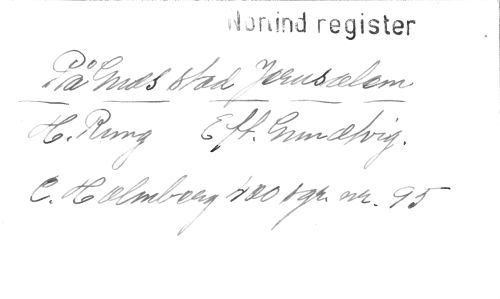 Nonind register
På Gudsstad Jerusalem
H. Rung Eft. Grundtvig.
C. Holmberg 100 sgr. nr. 95